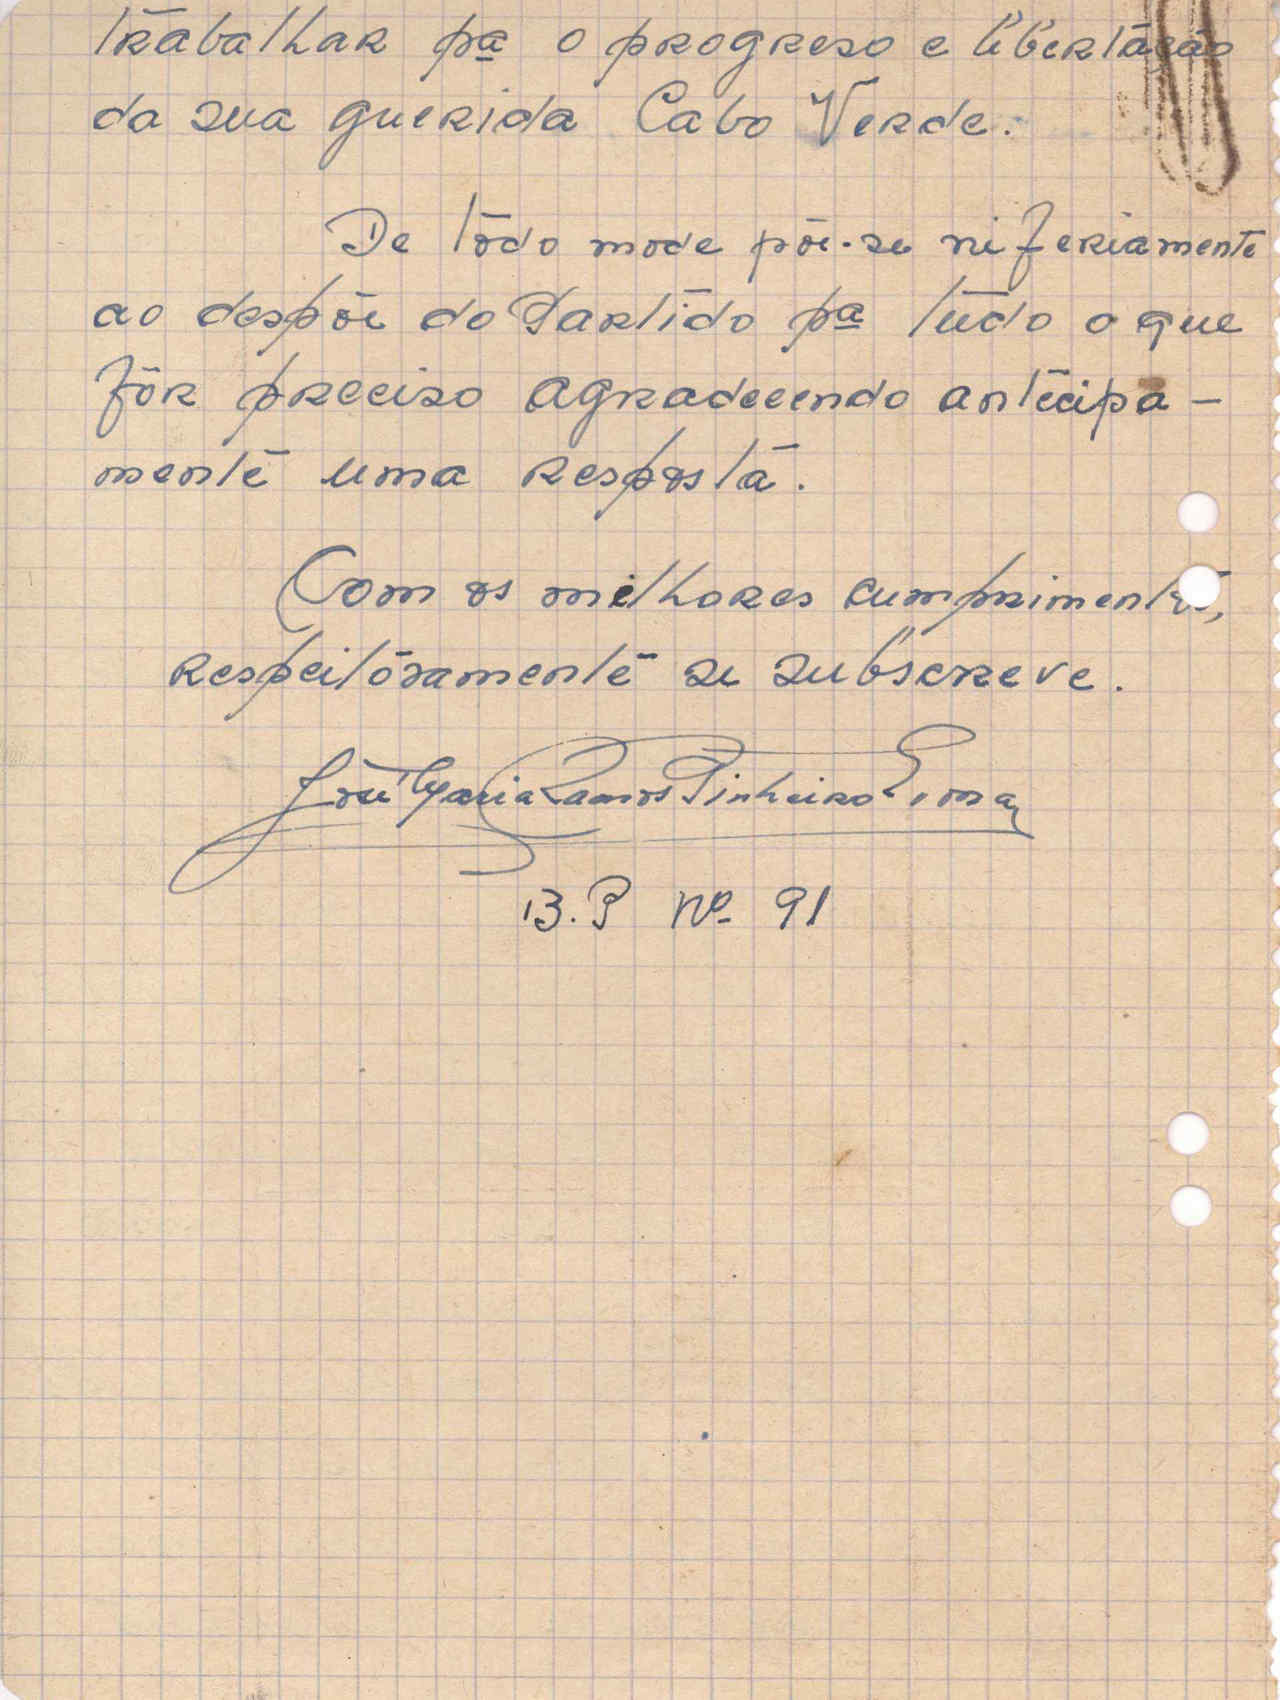 trabalhar pª o progreso e libertação
da sua querida Cabo Verde.
De todo mode põe-se
ao despôe do Partido pª tudo o que
fôr preciso agradecendo antecipa-
mente uma resposta.
Com os melhores cumprimentos,
respeitosamente se subscreve.
José Maria Ramos Pinheiro
B.P Nº 91